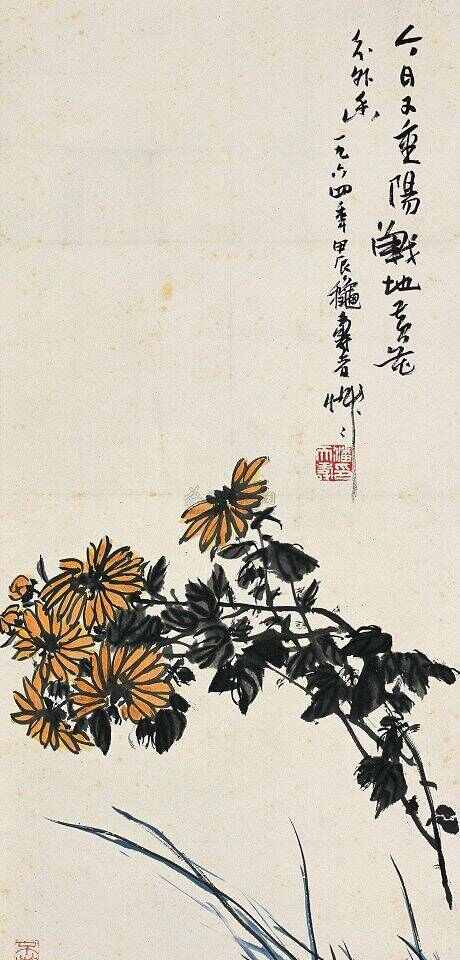 今日又重陽戰地黃花
分外香一九六四年甲辰穐壽者